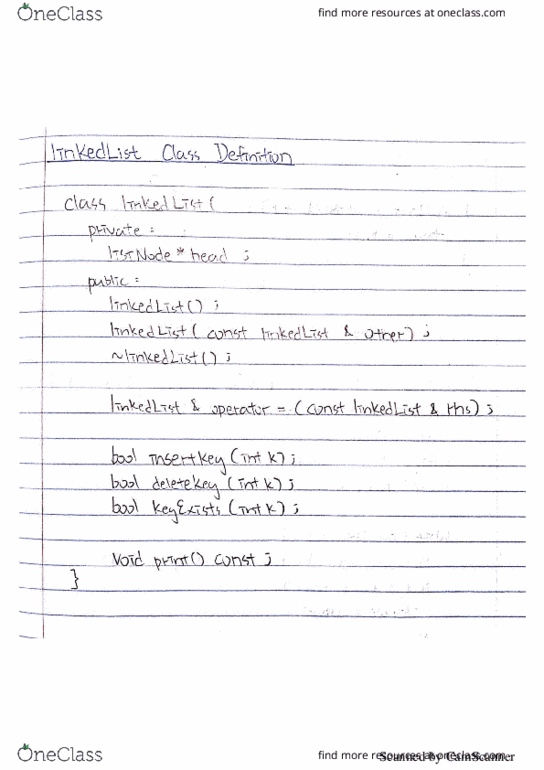 OneClass
find more resources at oneclass.com
linkedList Class Definition
class linkedList {
private :
listNode * head ;
public :
linkedList() ;
linkedList ( const linkedList & other) ;
~linkedList() ;
linkedList & operator = (const linkedList & rhs) ;
bool insertKey (int k) ;
bool deleteKey (int k) ;
bool keyExists (int k) ;
void print() const ;
}
OneClass
find more resources at oneclass.com
Scanned by CamScanner